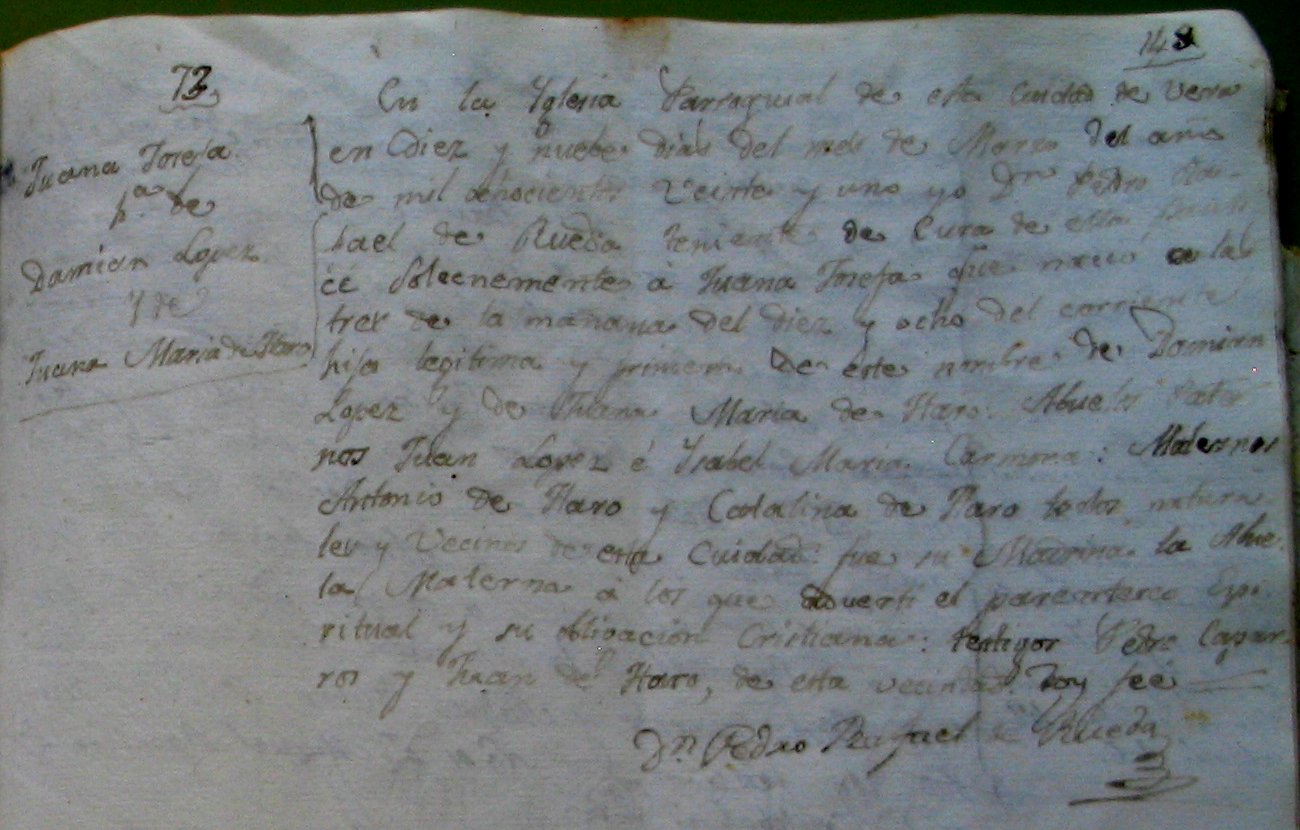 73
Juana Josefa
h.ª de
Damian Lopez
y de
Juana Maria de Haro
148
En la Yglesia Parroquial de esta Cuidad de Vera
en Diez y nuebe dias del mes de Marzo del año
de mil ochocientos Veinte y uno yo Dn Pedro Ra-
fael de Rueda teniente de Cura de ella Bauti
cé Solecnemente á Juana Josefa que nació a las
tres de la mañana del diez y ocho del corriente
hija legitima y primera de este nombre de Damian
Lopez y de Juana Maria de Haro: Abuelos Pater
nos Juan Lopez é Ysabel Maria Carmona: Maternos
Antonio de Haro y Catalina de Haro todos natura-
les y Vecinos de esta Cuidad: fue su Madrina la Abue-
la Materna á los que adverti el parentesco Espi
ritual y su obligacion Cristiana: testigos Pedro Capar-
ros y Juan de Haro, de esta vecindad. Doy feé
Dn Pedro Rafael de Rueda